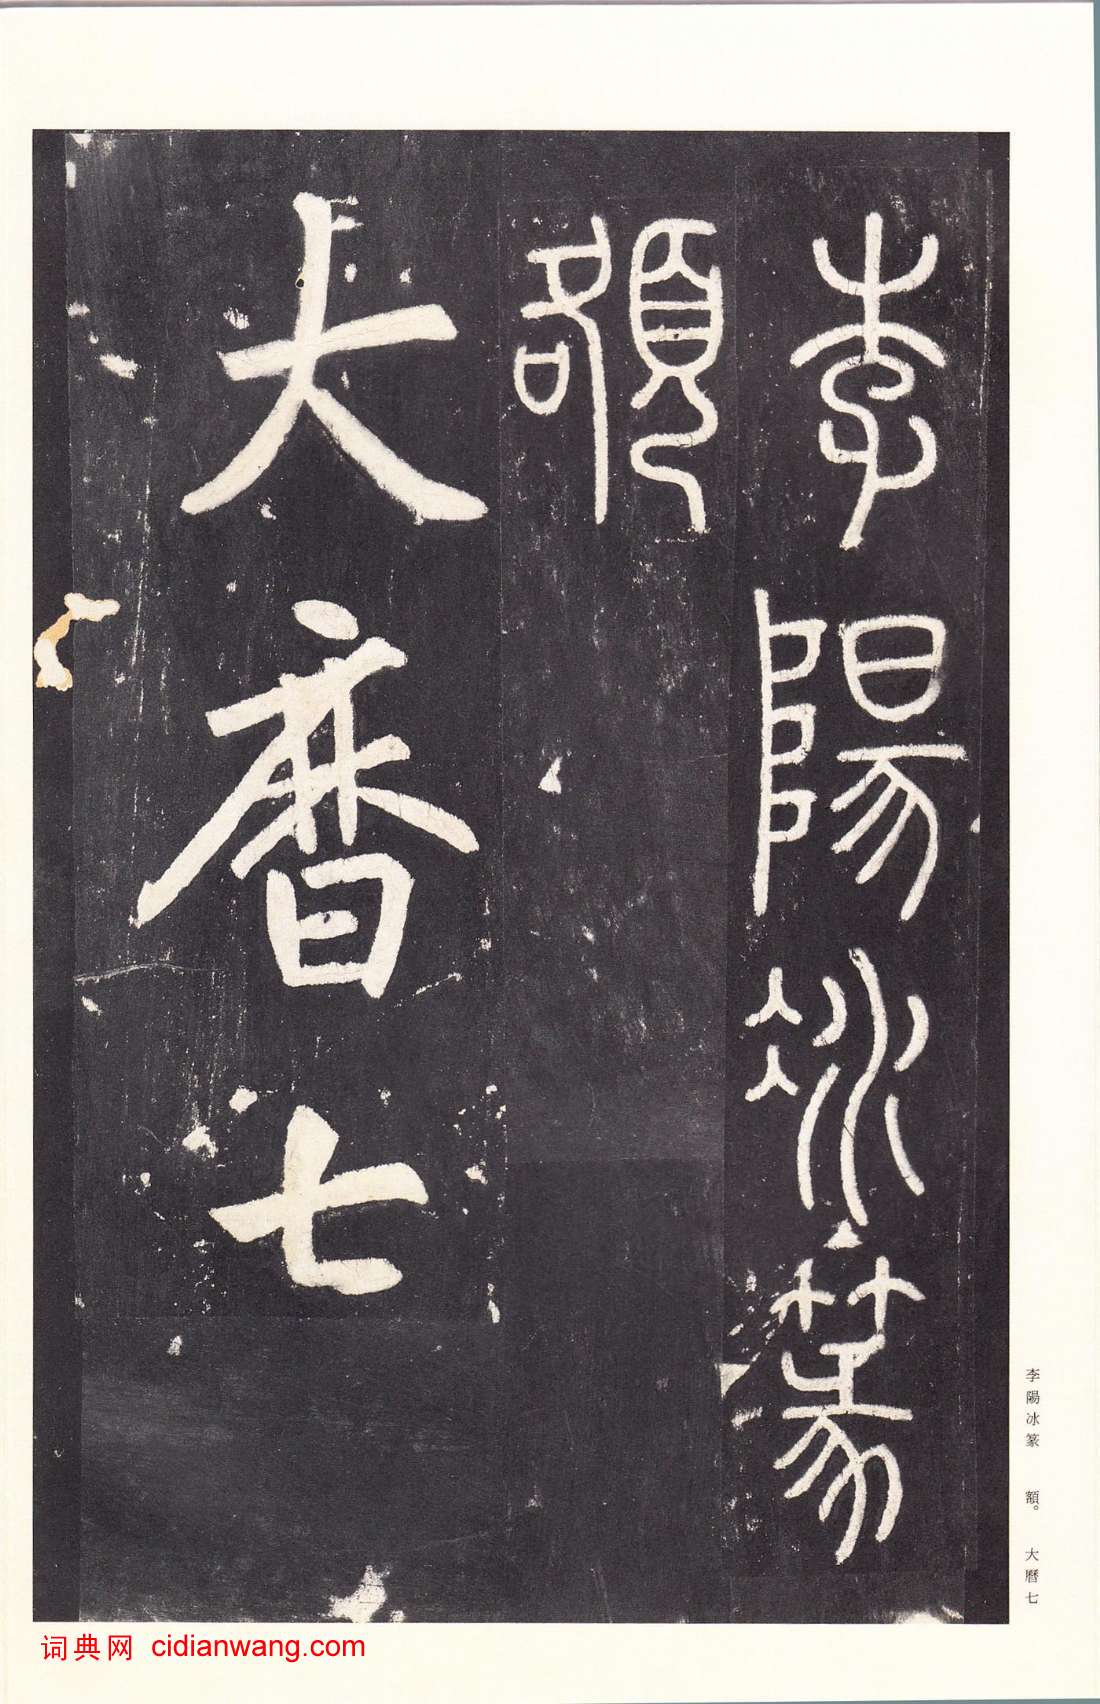 李陽冰篆
額
大曆七
李陽冰篆 額。 大曆七
词典网 cidianwang.com